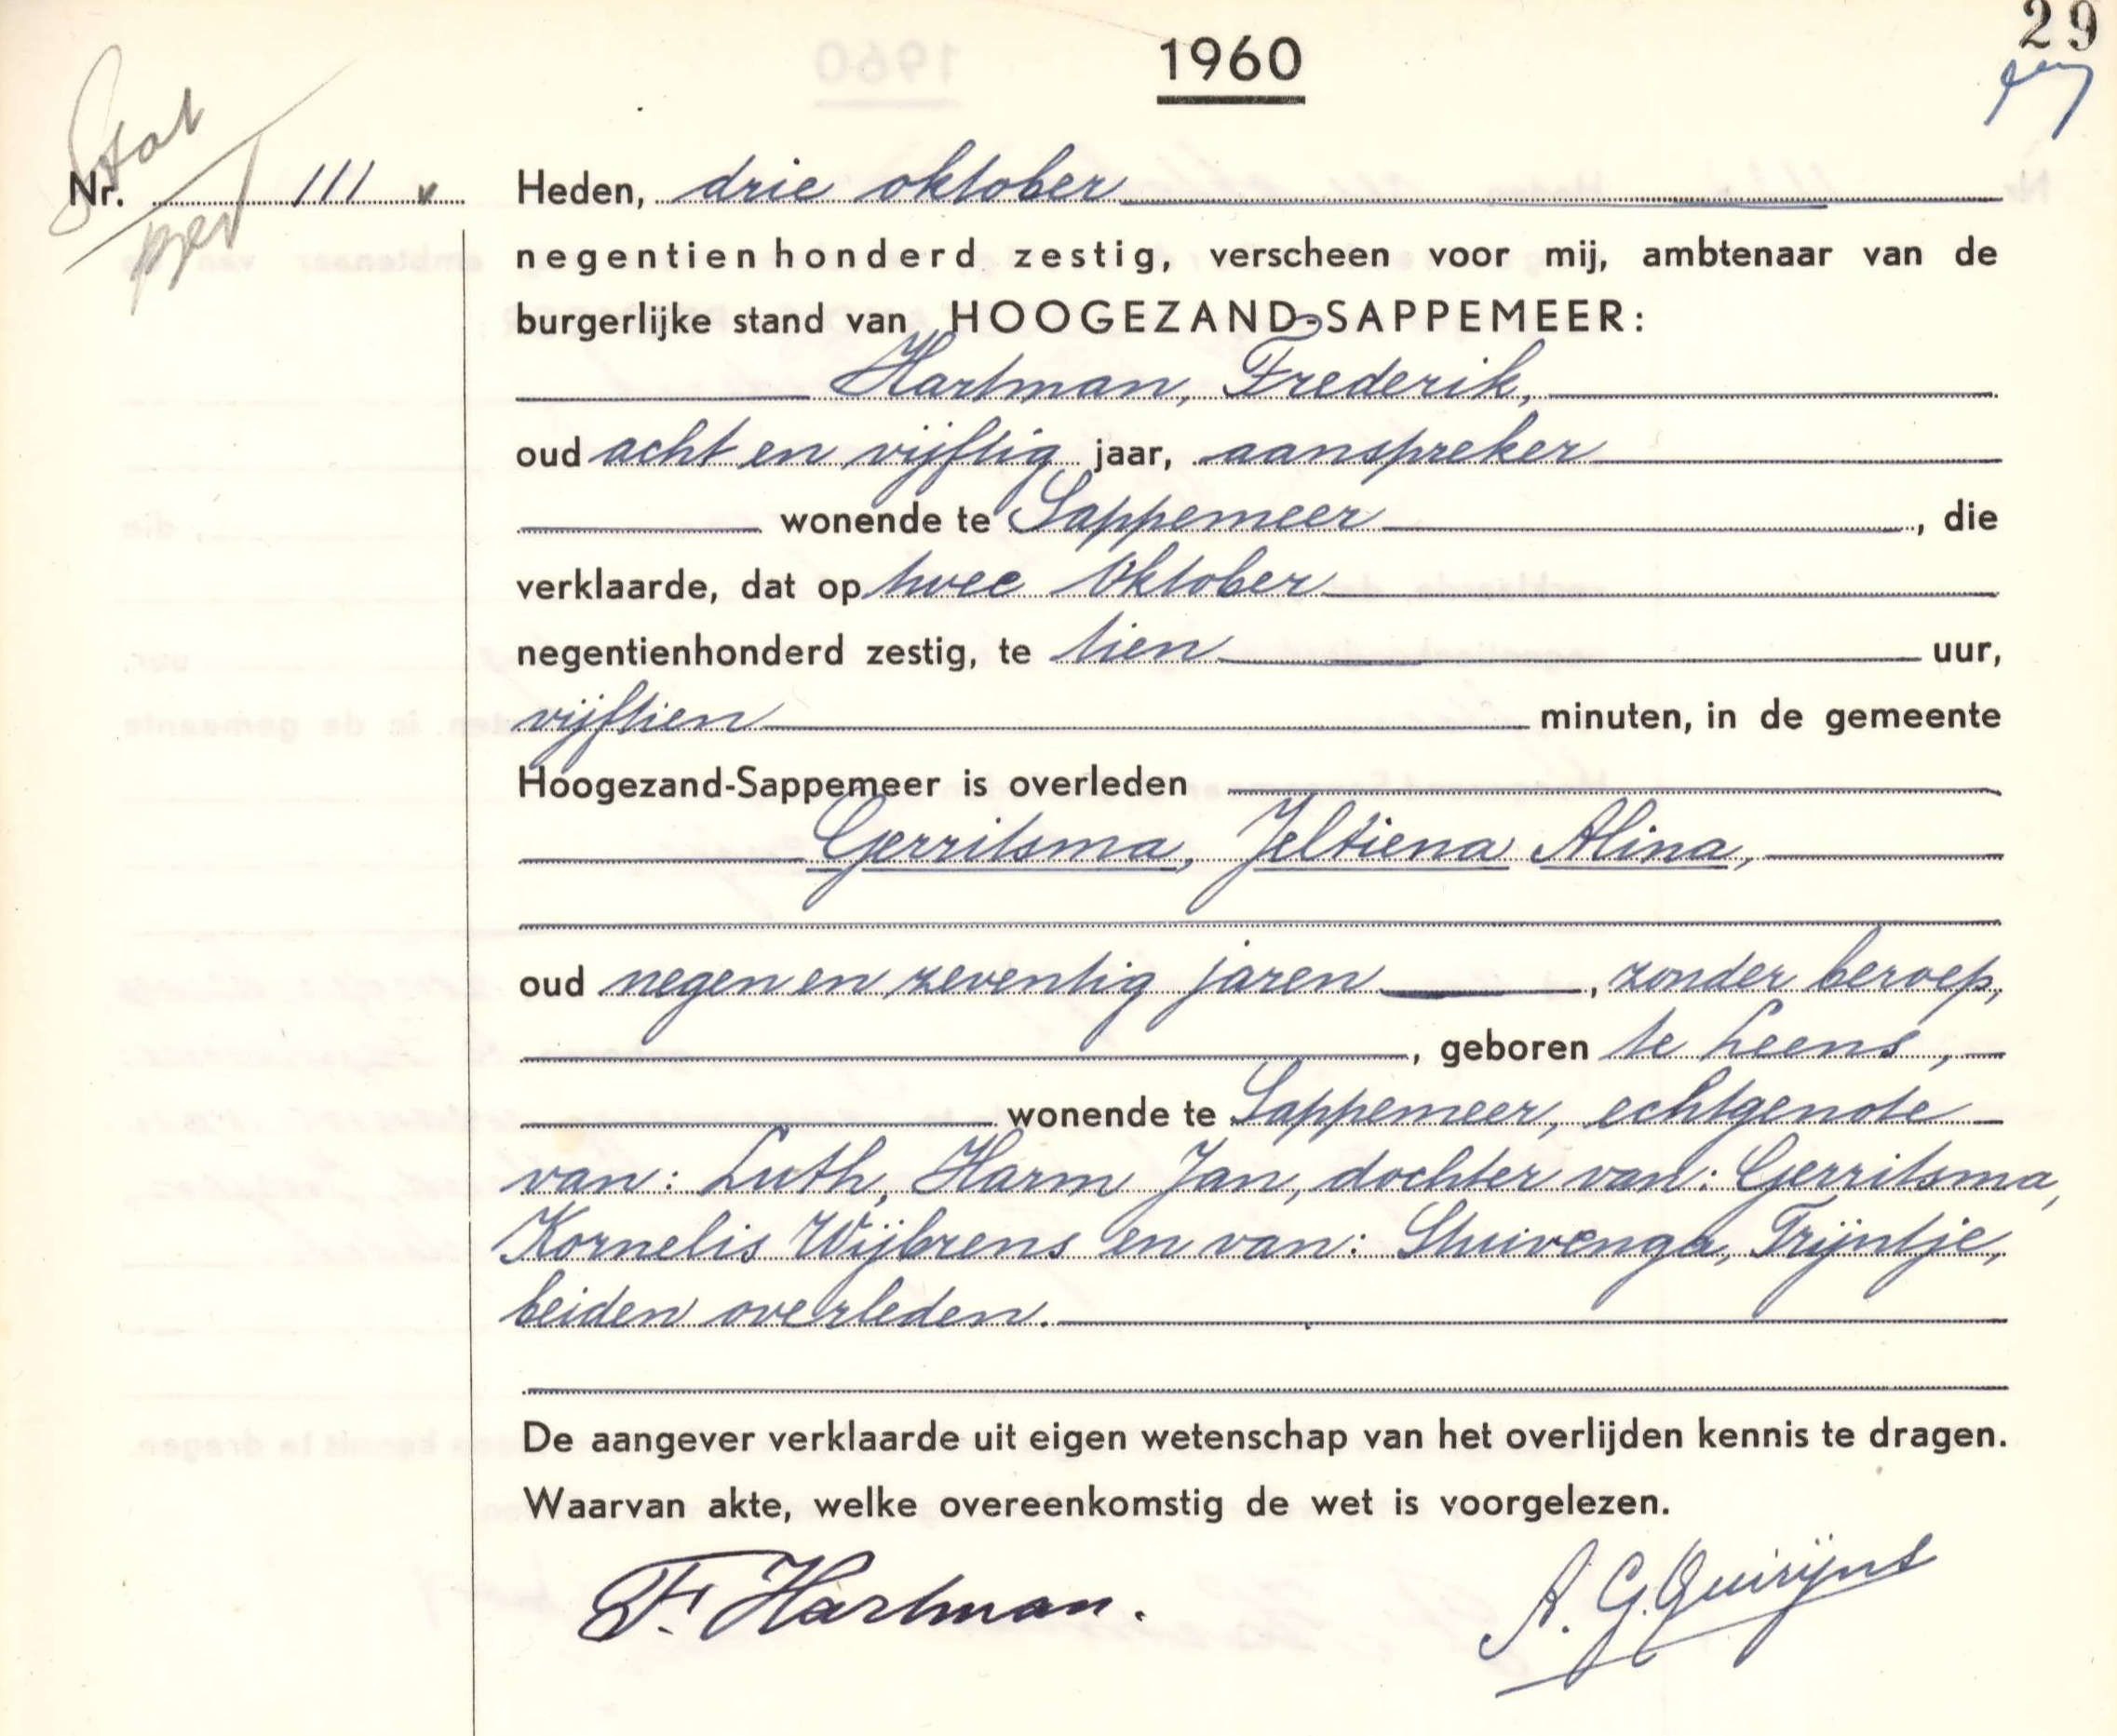 29
1960
Stat
per
Nr. 111 v
Heden, drie oktober
negentienhonderd zestig, verscheen voor mij, ambtenaar van de
burgerlijke stand van HOOGEZAND-SAPPEMEER:
Hartman, Frederik,
oud acht en vijftig jaar, aanspreker
wonende te Sappemeer, die
verklaarde, dat op twee oktober
negentienhonderd zestig, te tien uur,
vijftien minuten, in de gemeente
Hoogezand-Sappemeer is overleden
Gerritsma, Jeltiena Alina,
oud negen en zeventig jaren, zonder beroep,
, geboren te Leens,
wonende te Sappemeer, echtgenote
van: Luth, Harm Jan, dochter van: Gerritsma,
Kornelis Wijbrens en van: Stuivenga, Trijntje,
beiden overleden.
De aangever verklaarde uit eigen wetenschap van het overlijden kennis te dragen.
Waarvan akte, welke overeenkomstig de wet is voorgelezen.
F. Hartman. A. G. Quirijns